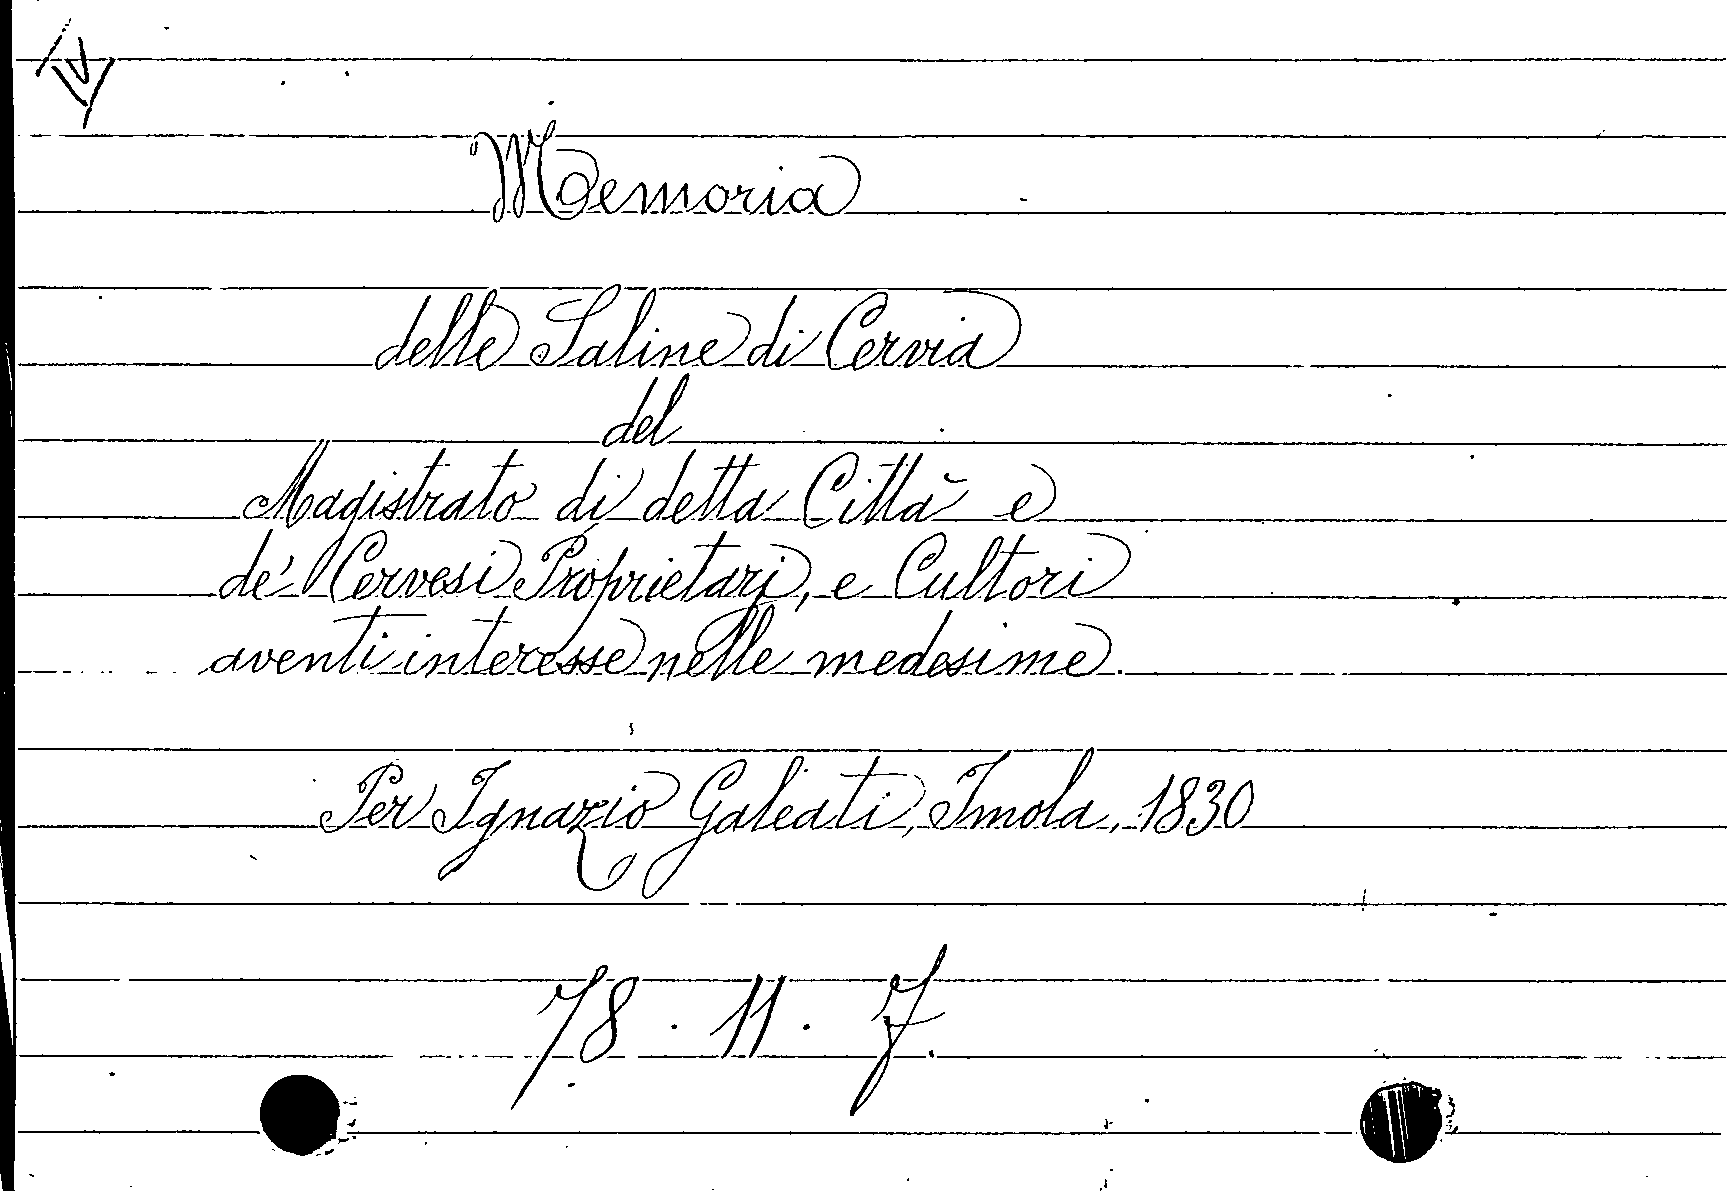 IV
Memoria
delle Saline di Cervia
del
Magistrato di detta Città e
de' Cervesi Proprietarj, e Cultori
aventi interesse nelle medesime.
Per Ignazio Galeati, Imola, 1830
78. 11. 7.